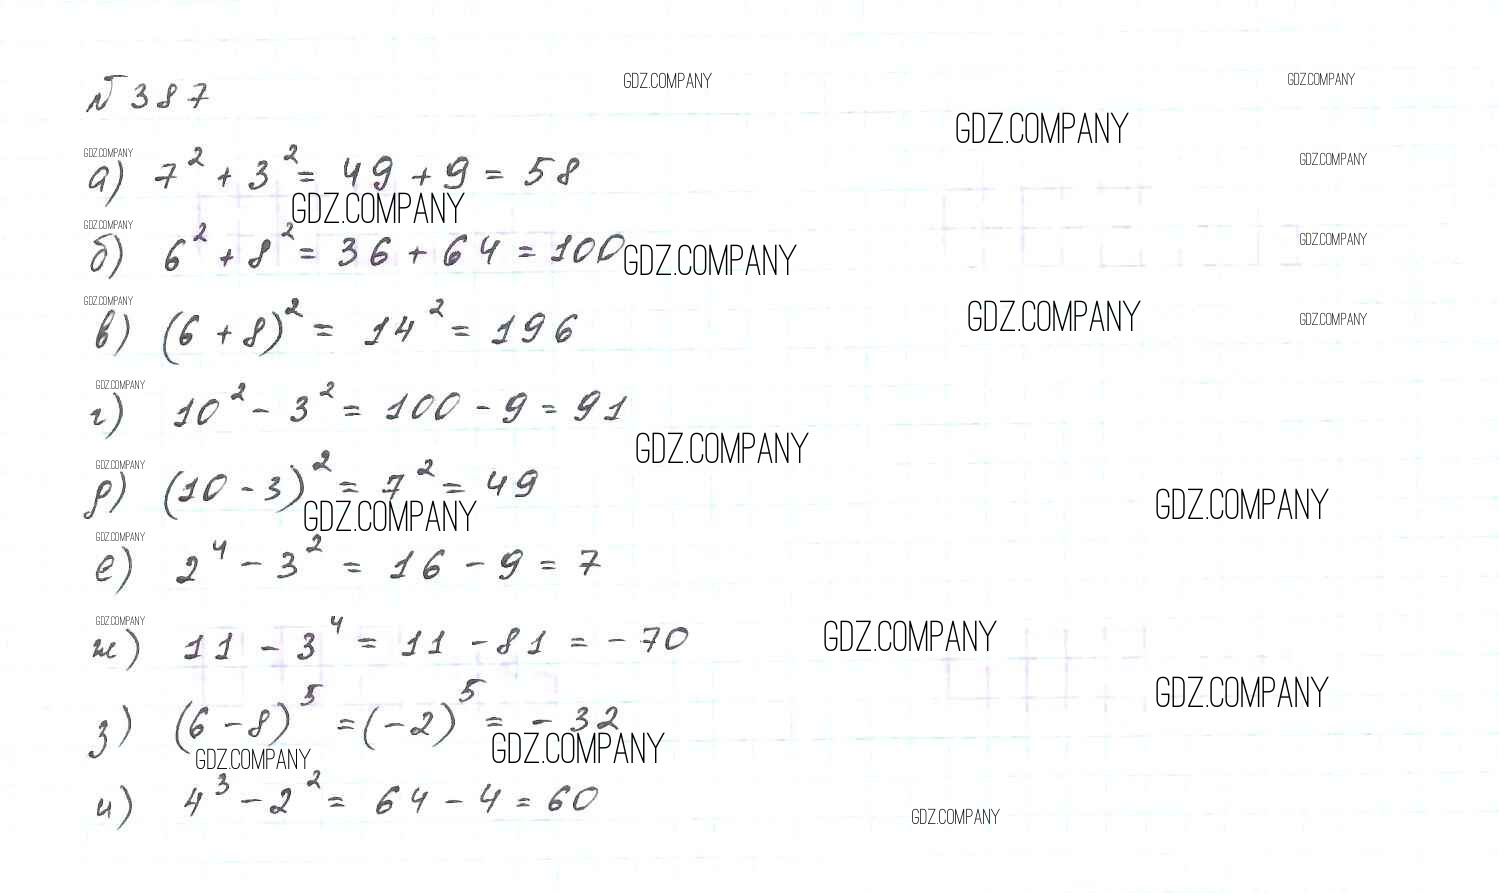 № 387
GDZ.COMPANY
GDZ.COMPANY
GDZ.COMPANY
GDZ.COMPANY
GDZ.COMPANY
а) 7² + 3² = 49 + 9 = 58
GDZ.COMPANY
GDZ.COMPANY
GDZ.COMPANY
б) 6² + 8² = 36 + 64 = 100
GDZ.COMPANY
GDZ.COMPANY
GDZ.COMPANY
в) (6 + 8)² = 14² = 196
GDZ.COMPANY
GDZ.COMPANY
GDZ.COMPANY
г) 10² - 3² = 100 - 9 = 91
GDZ.COMPANY
GDZ.COMPANY
д) (10 - 3)² = 7² = 49
GDZ.COMPANY
GDZ.COMPANY
GDZ.COMPANY
е) 2⁴ - 3² = 16 - 9 = 7
GDZ.COMPANY
ж) 11 - 3⁴ = 11 - 81 = - 70
GDZ.COMPANY
GDZ.COMPANY
з) (6 - 8)⁵ = (-2)⁵ = - 32
GDZ.COMPANY
GDZ.COMPANY
и) 4³ - 2² = 64 - 4 = 60
GDZ.COMPANY